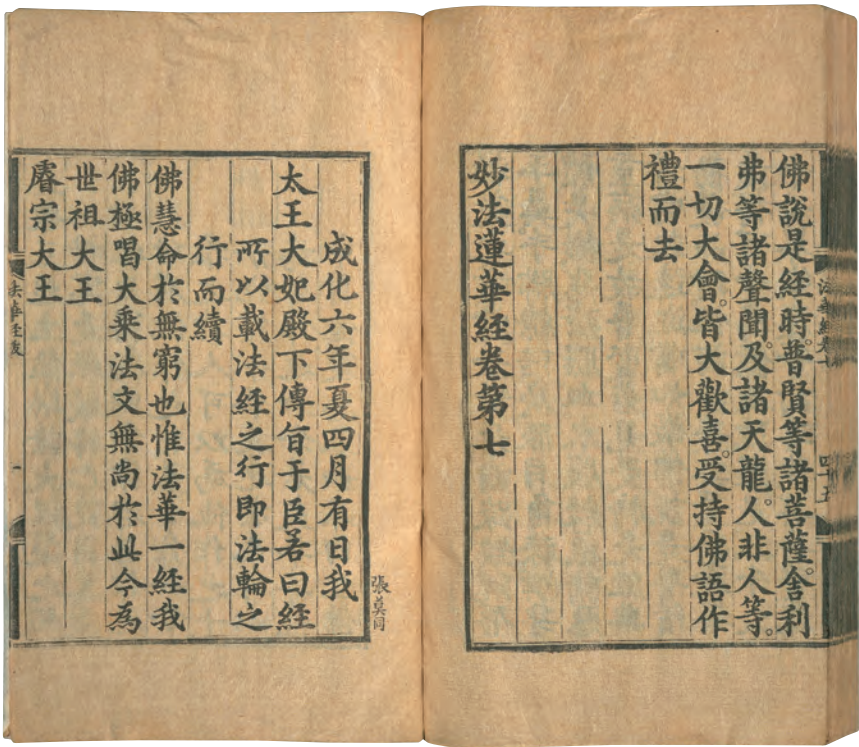 佛說是經時。普賢等諸菩薩。舍利
弗等諸聲聞。及諸天龍。人非人等。
一切大會。皆大歡喜。受持佛語作
禮而去
妙法蓮華經卷第七
法華經卷七
四十五
張莫同
成化六年夏四月有日我
太王大妃殿下傳旨于臣若曰經
所以載法經之行即法輪之
行而續
佛慧命於無窮也惟法華一經我
佛極唱大乘法文無尚於此今為
世祖大王
睿宗大王
法華經跋
一